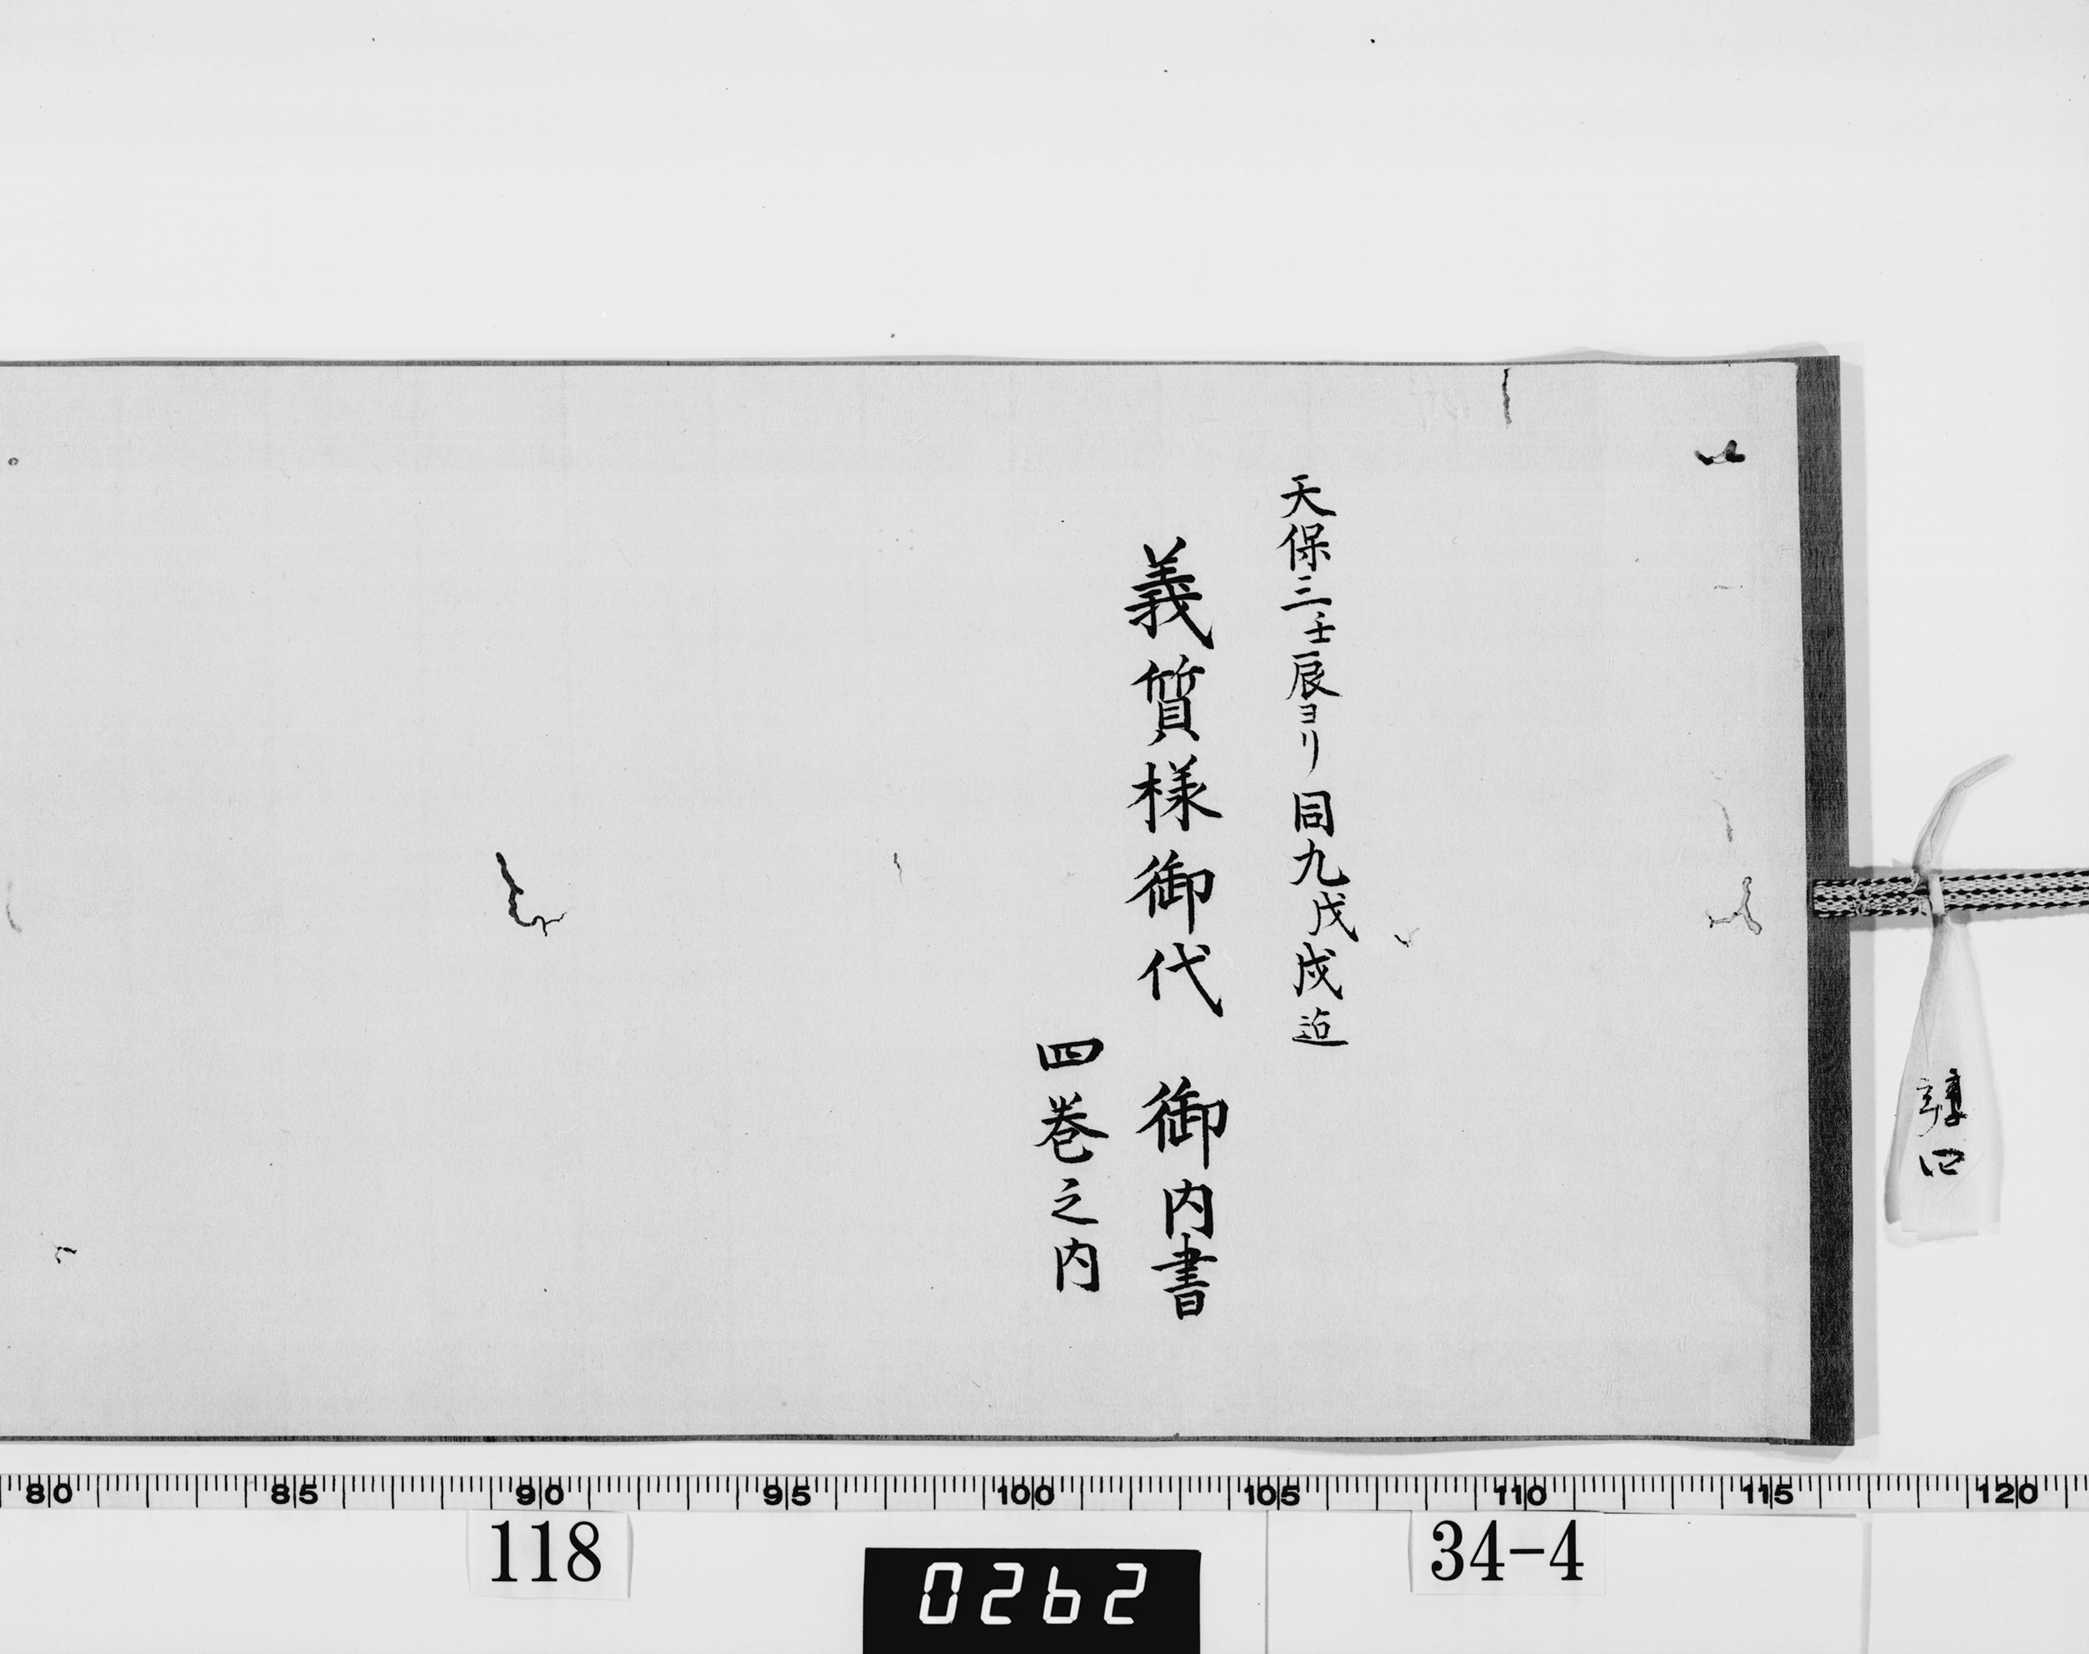 天保三壬辰ヨリ同九戊戌迄
義質様御代　御内書
四巻之内
80 85 90 95 100 105 110 115 120
118
0262
34-4